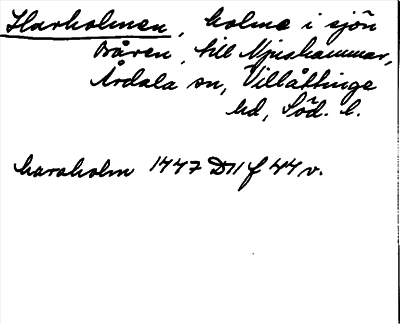 Harholmen, holme i sjön
Båven, till Mjushammar,
Årdala sn, Villåttinge
hd, Söd. l.
haraholm 1447 D11 f 44 v.